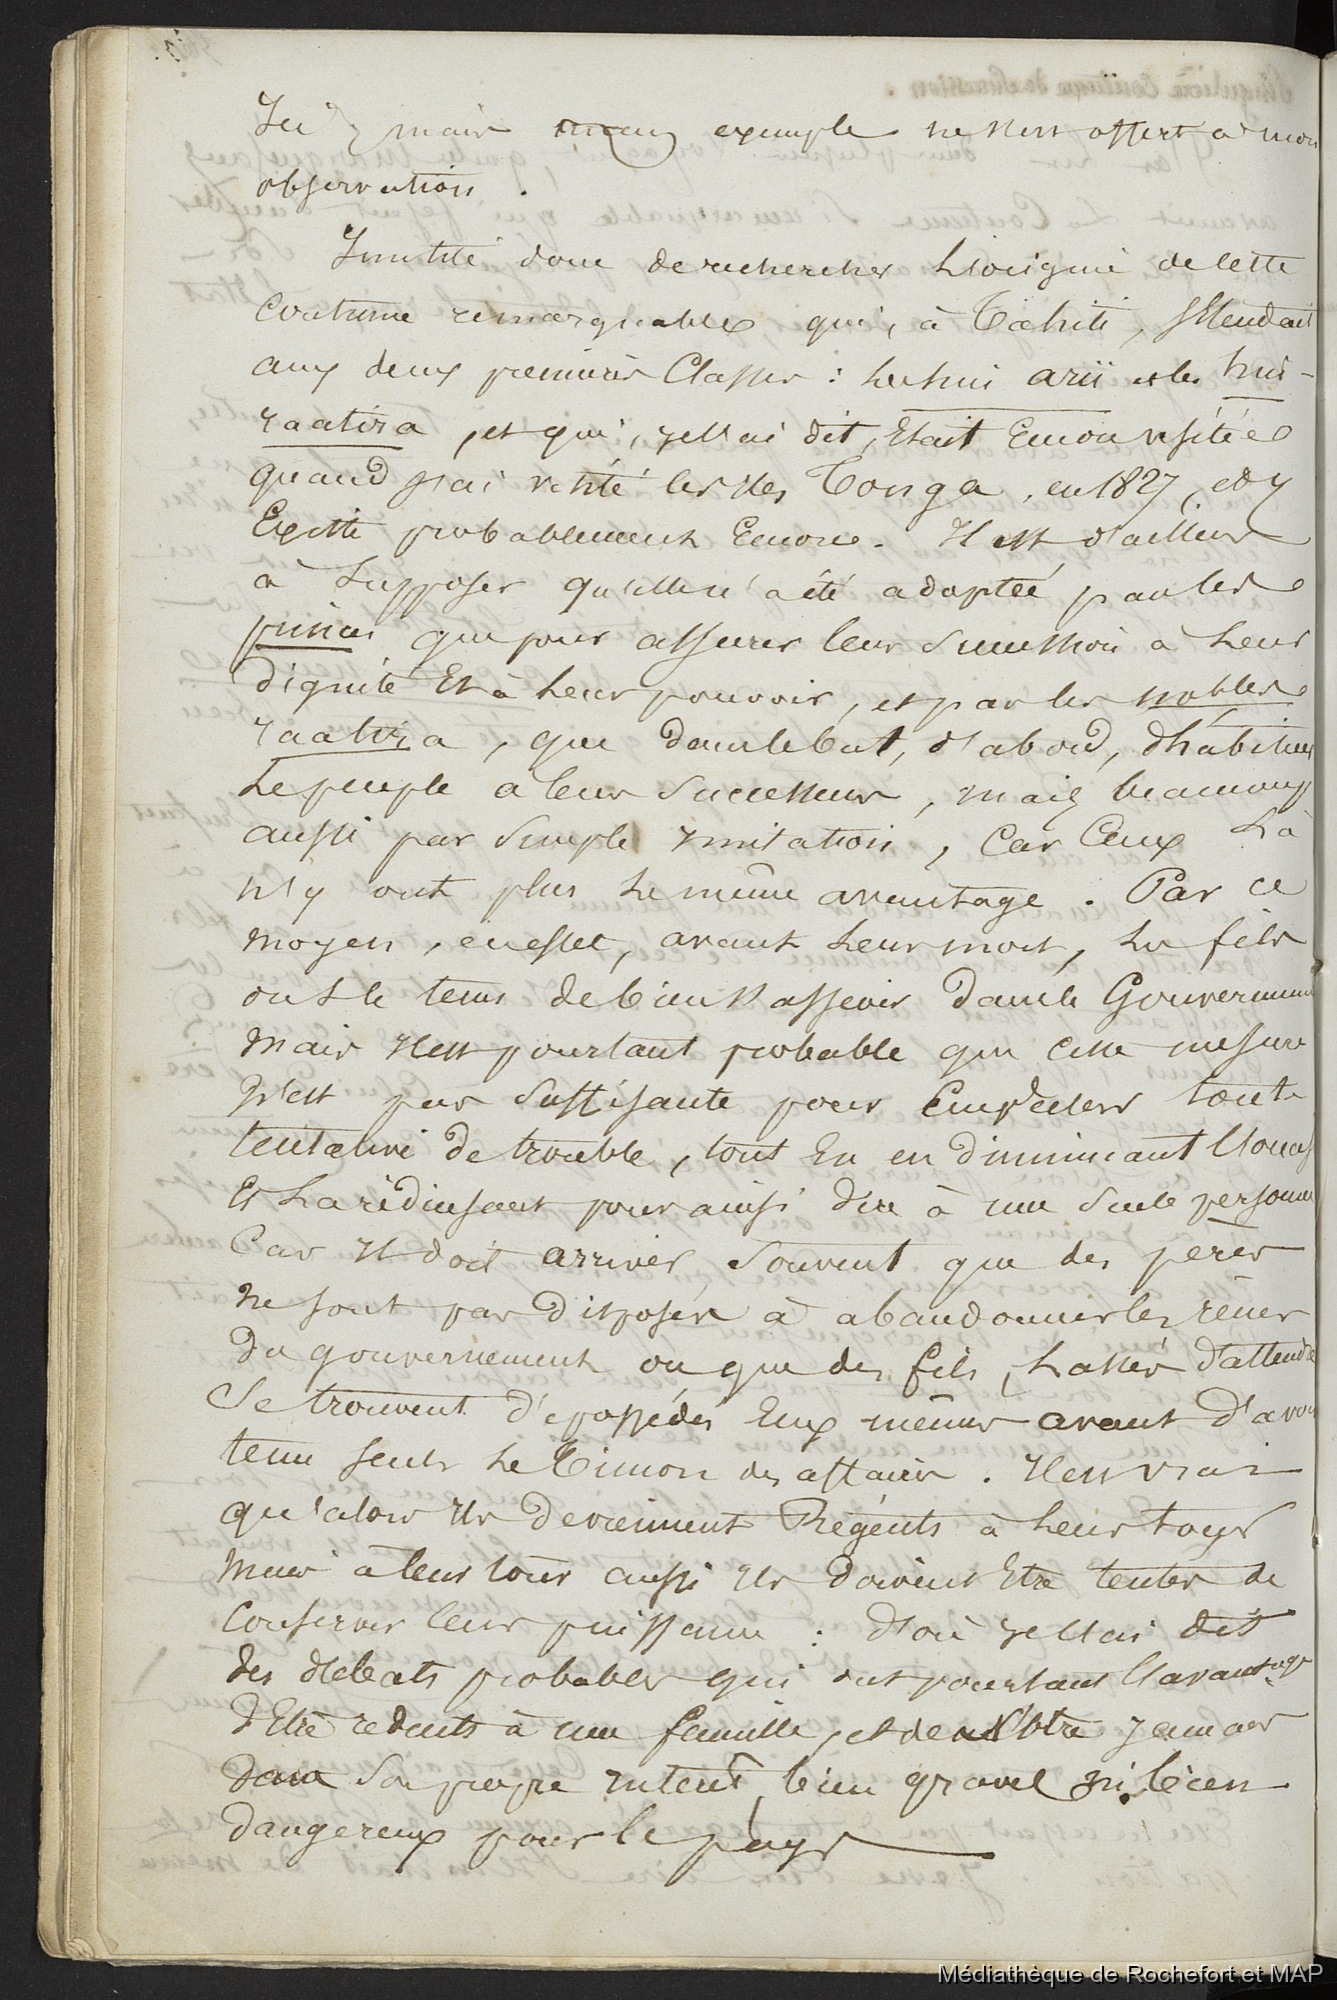 Ici, mais aucun exemple ne s'est offert à mon
observation.
Inutile donc de rechercher l'origine de cette
coutume remarquable qui, à Tahiti, s'étendait
aux deux premières Classes : les hui arii et les hui-
raatira, et qui, je l'ai dit, était encore usitée
quand j'ai visité les iles Tonga, en 1827, et y
Existe probablement Encore. Il est d'ailleurs
à supposer qu'elle n'a été adoptée par les
princes que pour assurer leur succession à leur
dignité et à leur pouvoir, et par les nobles
raatira, que dans le but, d'abord, d'habituer
le peuple a leur successeur, mais beaucoup
aussi par simple imitation, Car Ceux là
n'y ont plus le même avantage. Par ce
moyen, en effet, avant leur mort, les fils
ont le tems de bien s'asseoir dans le Gouvernement
mais il est pourtant probable que cette mesure
n'est pas suffisante pour Empêcher toute
tentative de trouble, tout En en diminuant l'occas
Et la réduisant pour ainsi dire à une seule personne
Car il doit arriver souvent que des pères
ne sont pas disposés à abandonner les rênes
du gouvernement ou que des fils, lassés d'attendre
se trouvent dépossédés Eux mêmes avant d'avoir
tenu seuls le timon des affaires. Il est vrai
qu'alors ils deviennent Régents à leur tour
mais à leur tour aussi ils doivent Etre tentés de
conserver leur puissance : d'où je l'ai dit
des débats probables qui ont pourtant l'avantage
d'Etre réduits à une famille, et de n'être jamais
dans son propre intérêt, bien grave ni bien
dangereux pour le pays
Médiathèque de Rochefort et MAP